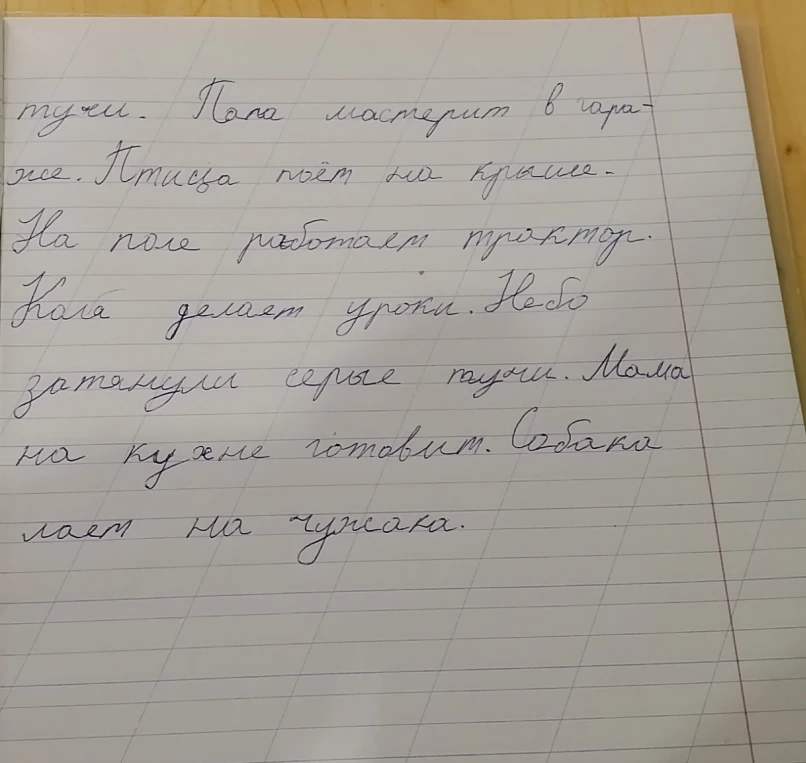 тучи. Папа мастерит в гара-
же. Птица поёт на крыше.
На поле работает трактор.
Коля делает уроки. Небо
затянули серые тучи. Мама
на кухне готовит. Собака
лает на чужака.